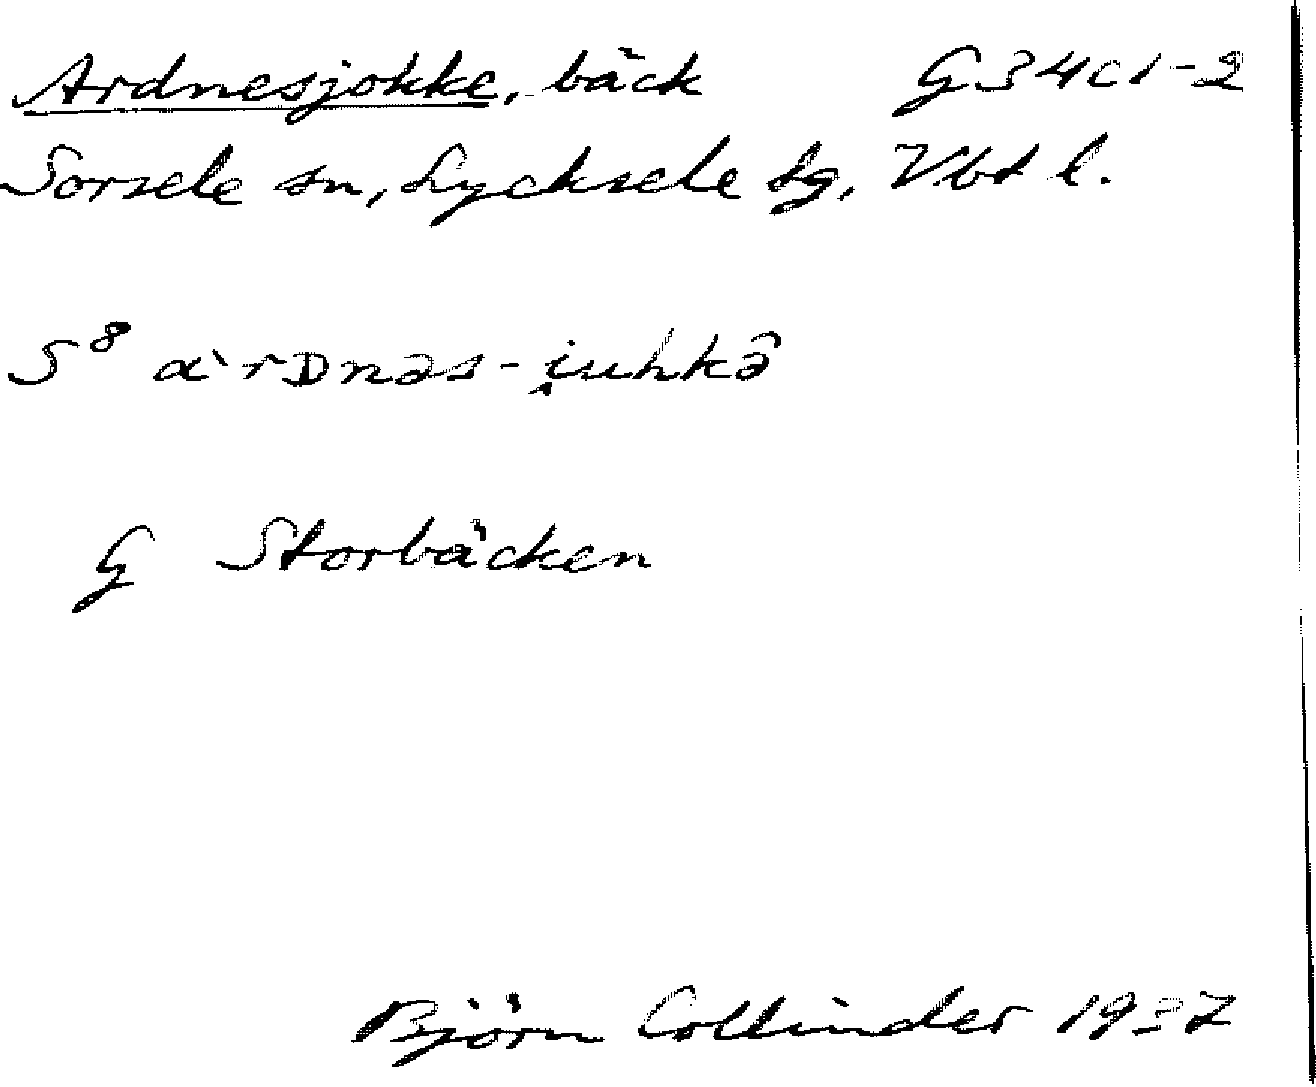 Ardnesjokke, bäck G34c1-2
Sorsele sn, Lycksele tg, Vbt l.
S⁸ ɑ̀rDnəs-i̯uhkə̑
G Storbäcken
Björn Collinder 1937